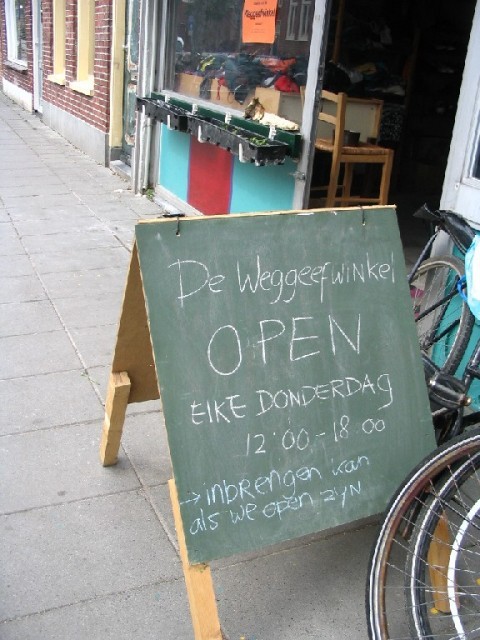 De Weggeefwinkel
OPEN
ElKE DONDERDAG
12:00-18 00
→inbrengen kan
als we open zyn